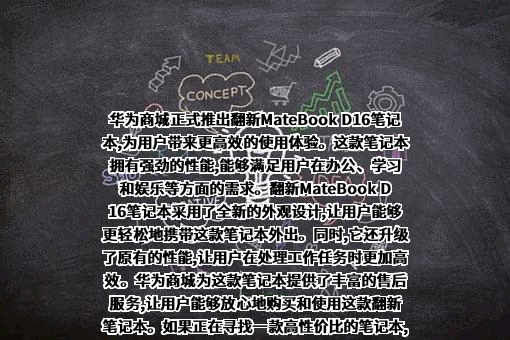 TEAM
CONCEPT
华为商城正式推出翻新MateBook D16笔记
本,为用户带来更高效的使用体验。这款笔记本
拥有强劲的性能,能够满足用户在办公、学习
和娱乐等方面的需求。翻新MateBook D
16笔记本采用了全新的外观设计,让用户能够
更轻松地携带这款笔记本外出。同时,它还升级
了原有的性能,让用户在处理工作任务时更加高
效。华为商城为这款笔记本提供了丰富的售后
服务,让用户能够放心地购买和使用这款翻新
笔记本。如果正在寻找一款高性价比的笔记本,